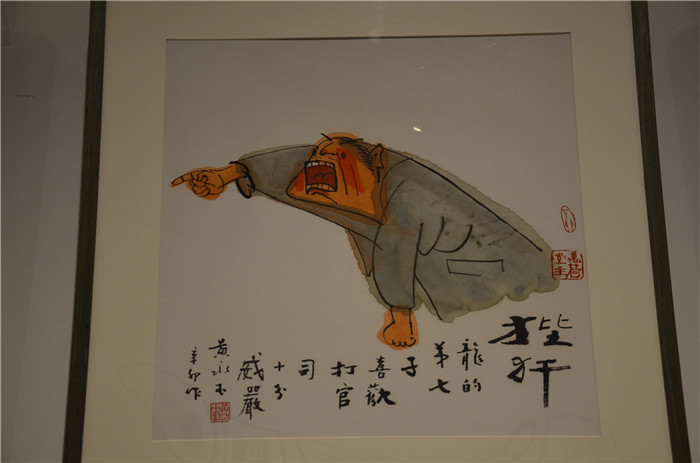 狴犴
龍的
第七
子
喜歡
打官
司
十分
威嚴
黃永玉
辛卯作